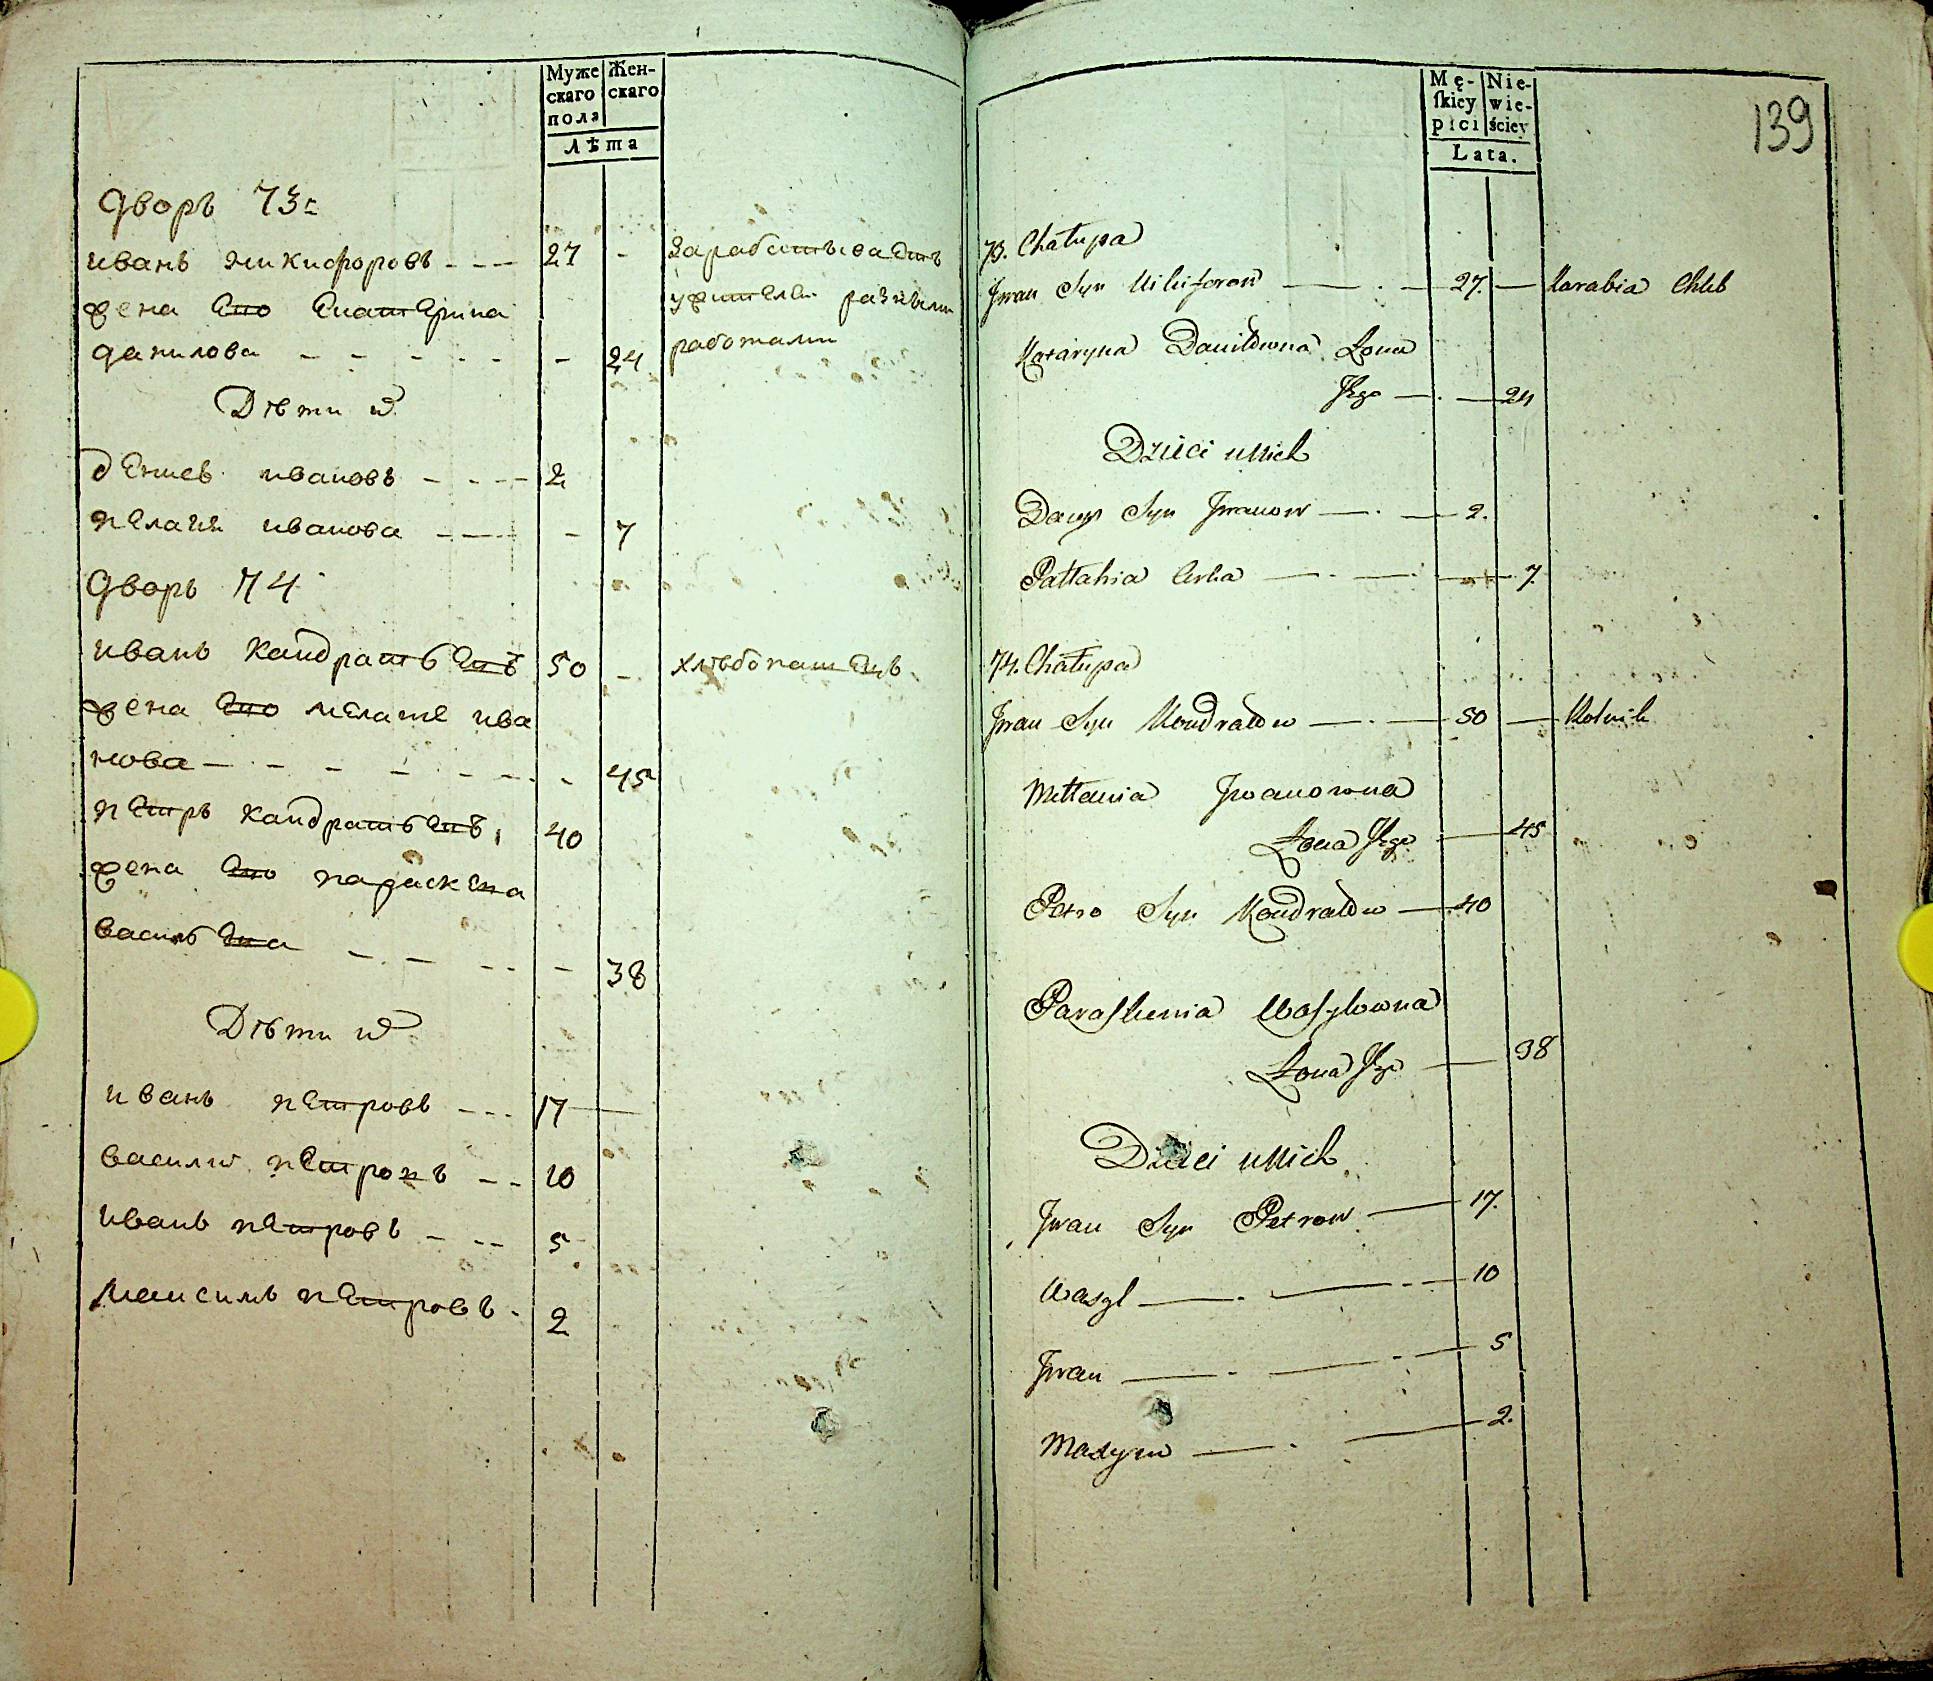 Муже Жен-
скаго скаго
пола
Лѣта
Дворъ 73:
иванъ никифоровъ - - - 27 -
зарабатываетъ
жена ево екатерина
ужителен разными
данилова - - - - - - 24
работами
Дѣти их
денисъ ивановъ - - - - 2
пелагия иванова - - - - - 7
Дворъ 74
иванъ кандратьевъ 50 -
хлѣбопашецъ
жена ево мелание ива
нова - - - - - - - - 45
петръ кандратьевъ, 40
жена ево параскева
васильева - - - - - - 38
Дѣти их
иванъ петровъ - - - 17 -
василий петровъ - - 10
иванъ петровъ - - - 5
максимъ петровъ - 2
Mę- Nie-
ſkiey wie-
płci ściey
Lata.
139
73. Chałupa
Jwan Syn Nikiforow - 27. - Zarabia Chleb
Kataryna Daniłowna Żona
Jego - 24
Dzieci u Nich
Denys Syn Jwanow - 2.
Pałłahia Corka - 7
74. Chałupa
Jwan Syn Kondratow - 50 - Rolnik
Mełłania Jwanowna
Żona Jego - 45
Petro Syn Kondratow - 40
Paraſkewia Waſylowna
Żona Jego - 38
Dzieci u Nich
Jwan Syn Petrow - 17.
Wasyl - 10
Jwan - 5
Maxym - 2.